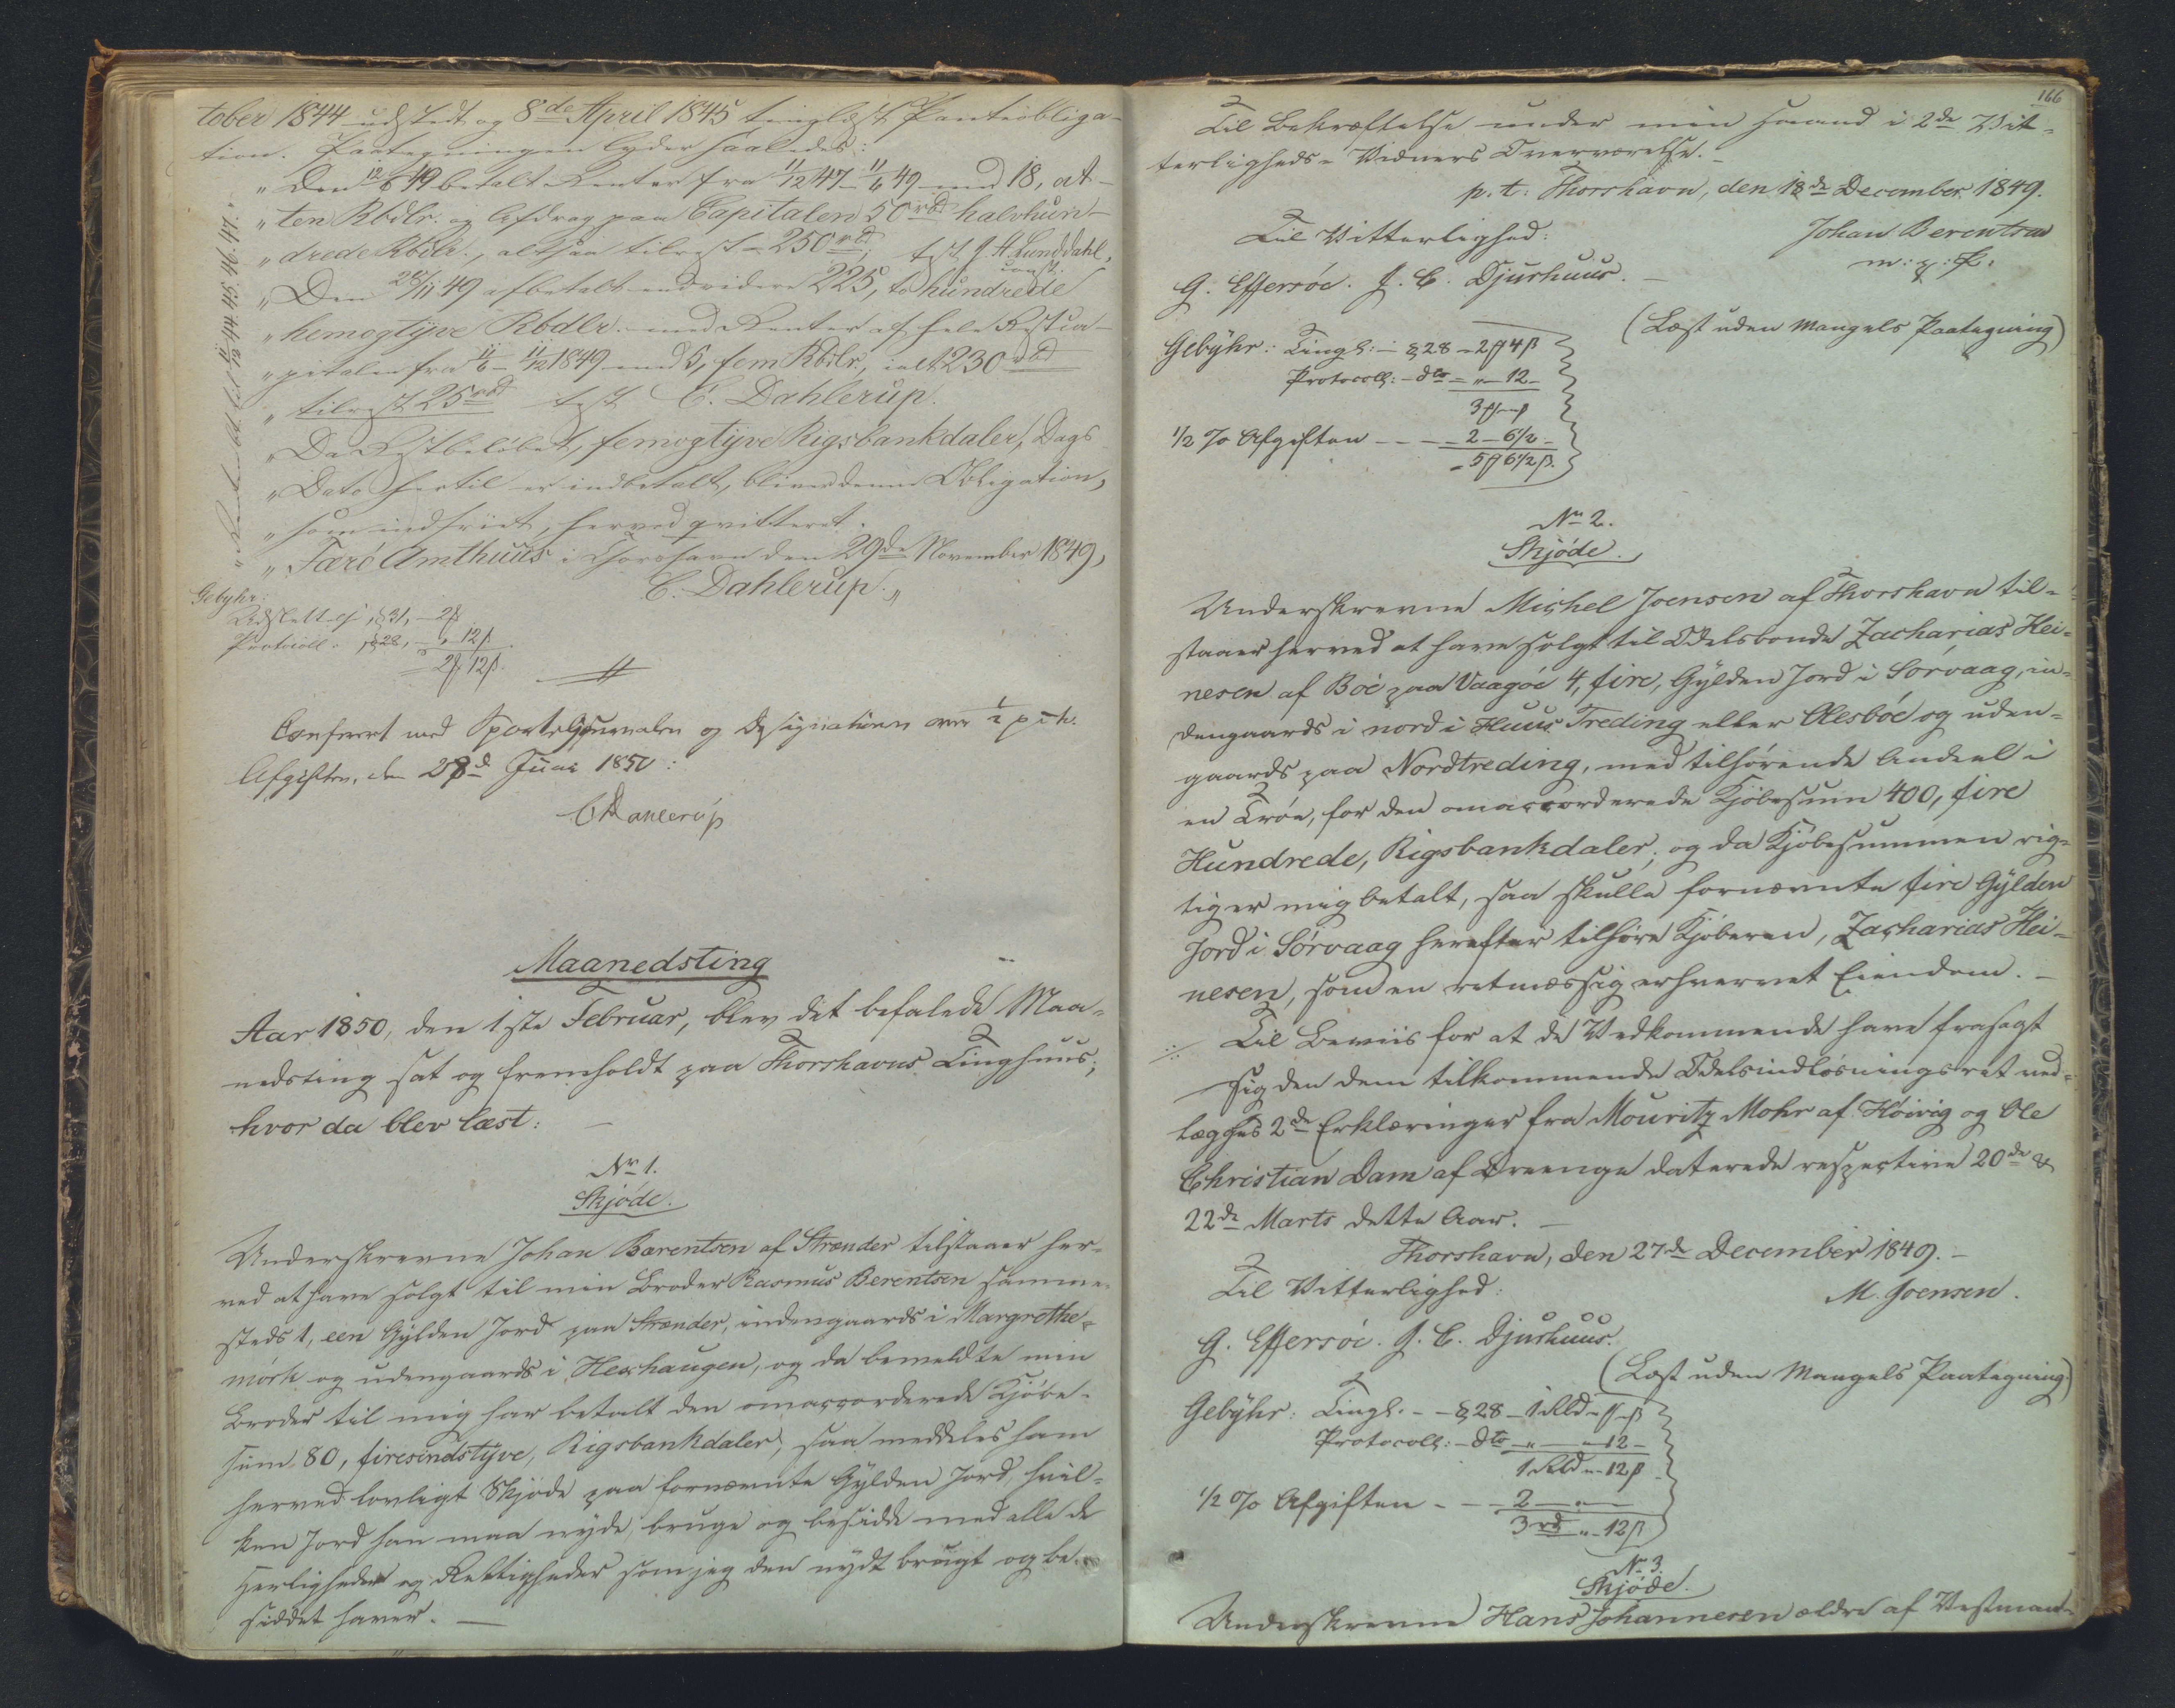 tober 1844 udstedt og 8de April 1845 tinglæst Pantobliga-
tion. Paategningen lyder saaledes:
"Den 12/6 49 betalt Renter fra 11/12 47 - 11/6 49 med 18, at-
"ten Rbdlr. og Afdrag paa Capitalen 50 rbd halvhun-
"drede Rbdlr., altsaa tilrest 250 rbd; test. J. H. Lunddahl,
const.
"Den 28/11 49 afbetalt endvidere 225, to hundrede
"femogtyve Rbdlr. med Renter af hele Restca-
"pitalen fra 11/6 - 11/12 1849 med 5, fem Rbdlr., ialt 230 rbd
"tilrest 25 rbd test. C. Dahlerup.
"Da Restbeløbet, femogtyve Rigsbankdaler, Dags
"Dato hertil er indbetalt, bliver denne Obligation,
"som indfriet, herved qvitteret.
"Færö Amthuus i Thorshavn den 29de November 1849,
C. Dahlerup."
"Renten bt. til 11/12 44. 45. 46. 47."
Gebyhr:
Udslettelse, § 31, - 2f
Protocoll. § 28, - " 12 β
2f 12β.
Confereret med Sporteljournalen og Designationen over ½ pCt.
Afgiften, den 28d Juni 1850:
CDahlerup
Maanedsting
Aar 1850, den 1ste Februar, blev det befalede Maa-
nedsting sat og fremholdt paa Thorshavns Tinghuus;
hvor da blev læst:
No 1.
Skjöde.
Underskrevne Johan Barentsen af Strænder tilstaaer her-
ved at have solgt til min Broder Rasmus Berentsen samme-
steds 1, een Gylden Jord paa Strænder, indengaards i Margrethe-
mörk og udengaards i Heshaugen, og da bemeldte min
Broder til mig har betalt den omaccorderede Kjöbe-
sum 80, firesindstyve, Rigsbankdaler, saa meddeles ham
herved lovligt Skjöde paa fornævnte Gylden Jord, hvil-
ken Jord han maa nyde, bruge og besidde med alle de
Herligheder og Rettigheder som jeg den nydt brugt og be-
siddet haver. —
166
Til Bekræftelse under min Haand i 2de Vit-
terligheds-Vidners Overværelse. -
p. t. Thorshavn, den 18de December 1849.
Til Vitterlighed: Johan Berentsen
G. Effersöe. J. C. Djurhuus. — m: p: P:
(Læst uden Mangels Paategning)
Gebyhr: Tingl: - § 28 - 2f 4β
Protocoll: - dto - " - 12 -
3f " β
1/2 % Afgiften - - - 2 - 6 1/2 -
5f 6 1/2 β.
No 2.
Skjöde.
Underskrevne Michel Joensen af Thorshavn til-
staaer herved at have solgt til Odelsbonde Zacharias Hei-
nesen af Böe paa Vaagöe 4, fire, Gylden Jord i Sörvaag, in-
dengaards i nord i Huus Treding eller Olesböe og uden-
gaards paa Nordtreding, med tilhörende Andeel i
en Tröe, for den omaccorderede Kjöbesum 400, fire
Hundrede, Rigsbankdaler; og da Kjöbesummen rig-
tig er mig betalt, saa skulle fornævnte fire Gylden
Jord i Sörvaag herefter tilhöre Kjöberen, Zacharias Hei-
nesen, som en retmæssig erhvervet Eiendom. —
Til Beviis for at de Vedkommende have frasagt
sig den dem tilkommende Odelsindlösningsret ved-
lægges 2de Erklæringer fra Mouritz Mohr af Höivig og Ole
Christian Dam af Qveenge daterede respective 20de &
22de Marts dette Aar. —
Thorshavn, den 27de December 1849. -
Til Vitterlighed: M. Joensen.
G. Effersöe. J. C. Djurhuus.
(Læst uden Mangels Paategning)
Gebyhr: Tingl. - - § 28 - 1 Rbd " f " β
Protocoll: - dto - " - " - 12 -
1 Rbd " - 12 β
1/2 % Afgiften - - - 2 - " -
3 rd " - 12 β
No 3.
Skjöde.
Underskrevne Hans Johannesen ældre af Vestmanh-